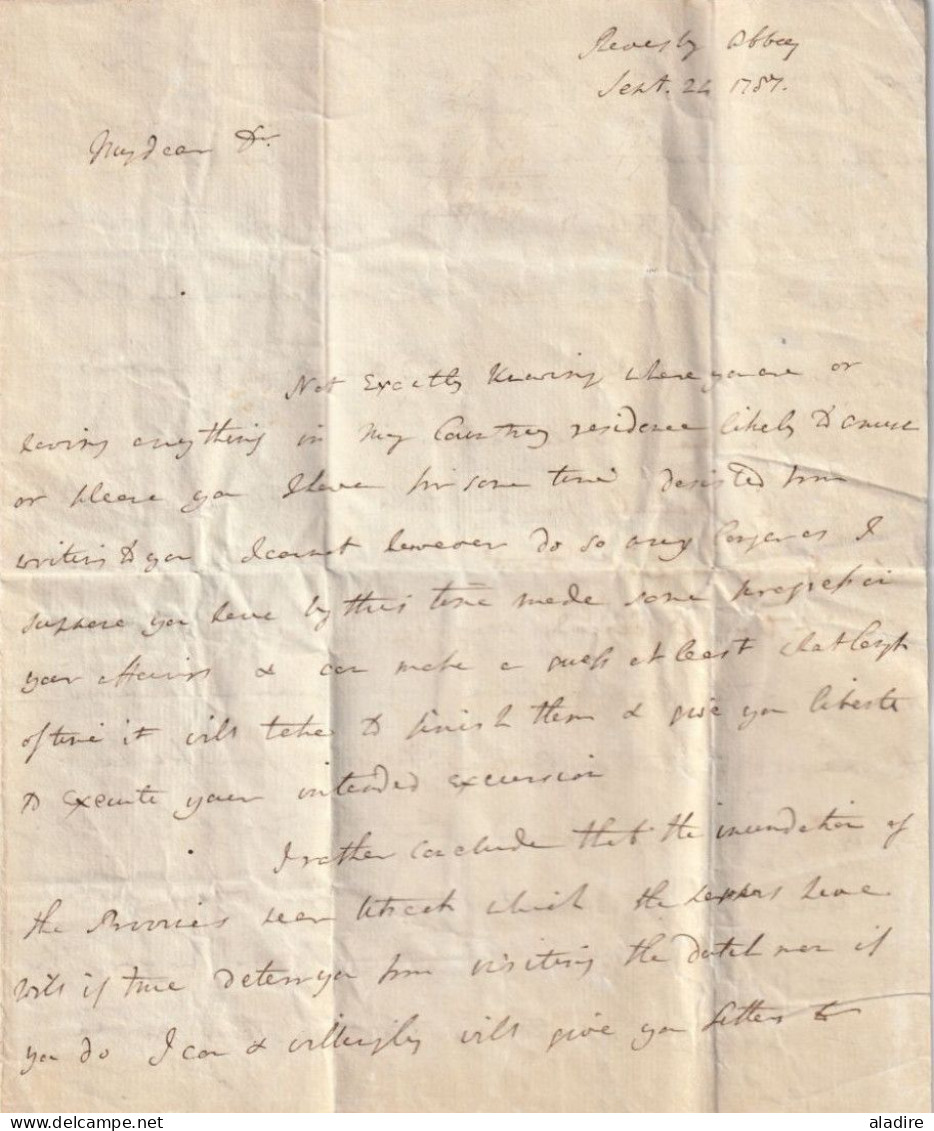 Revesby Abbey
Sept. 24 1787.
My dear Dr.
Not Exactly Knowing where you are or
having anything in my Country residence likely to amuse
or please you I have for some time desisted from
writing to you I cannot however do so any longer as I
suppose you have by this time made some progress in
your affairs & can make a guess at least what length
of time it will take to finish them & give you liberte
to Execute your intended excursion
I rather conclude that the inundation of
the near Utrech which the have
will if true deter you from visiting the dutch men if
you do I can & willingly will give you Letters to
aladire